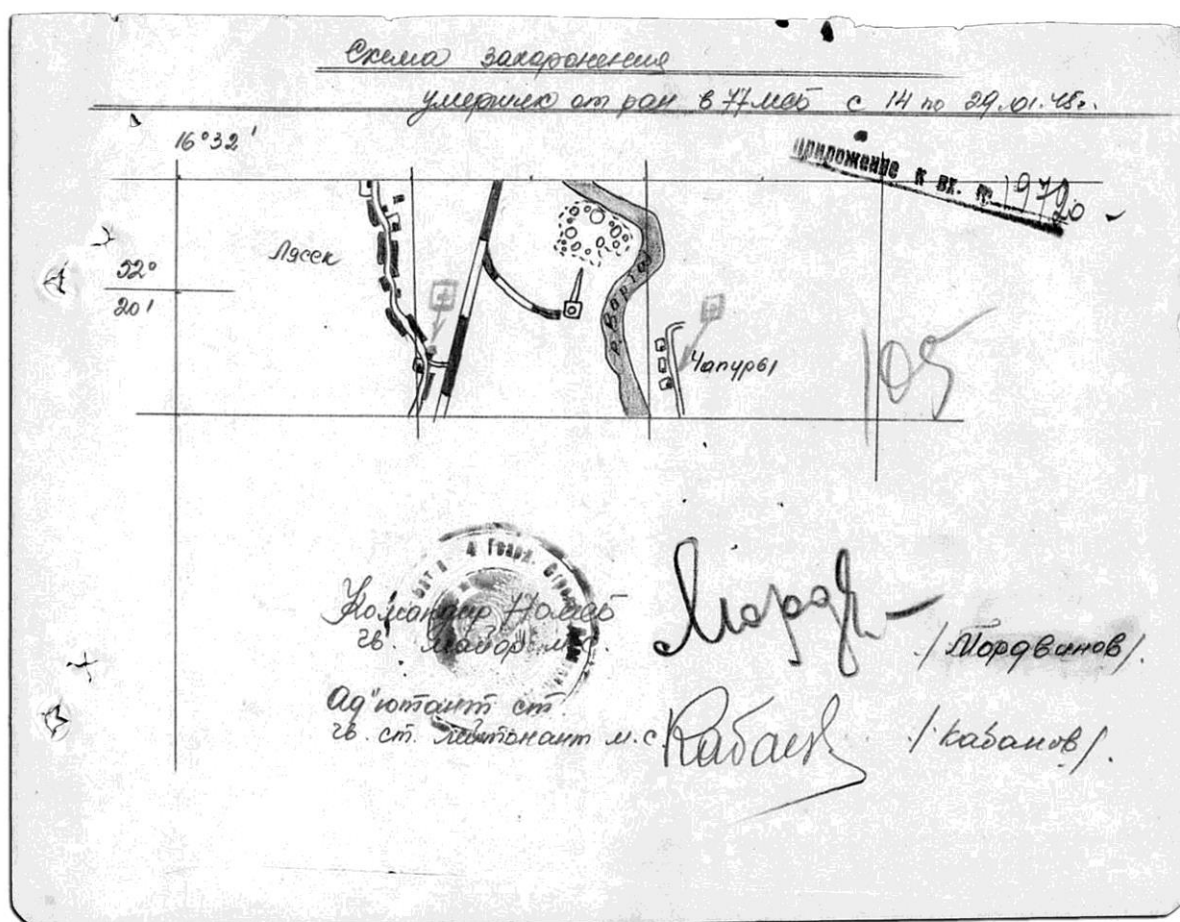 Схема захоронения
умерших от ран в 77 мсб с 14 по 29.01.45г.
16°32'
приложение к вх. №
Лясек
52°
20'
р. Варта
Чапуры
105
Командир 77 омсб
гв. майор м.с.
/Мордвинов/.
Ад'ютант ст.
гв. ст. лейтенант м.с.
Кабанов
/Кабанов/.